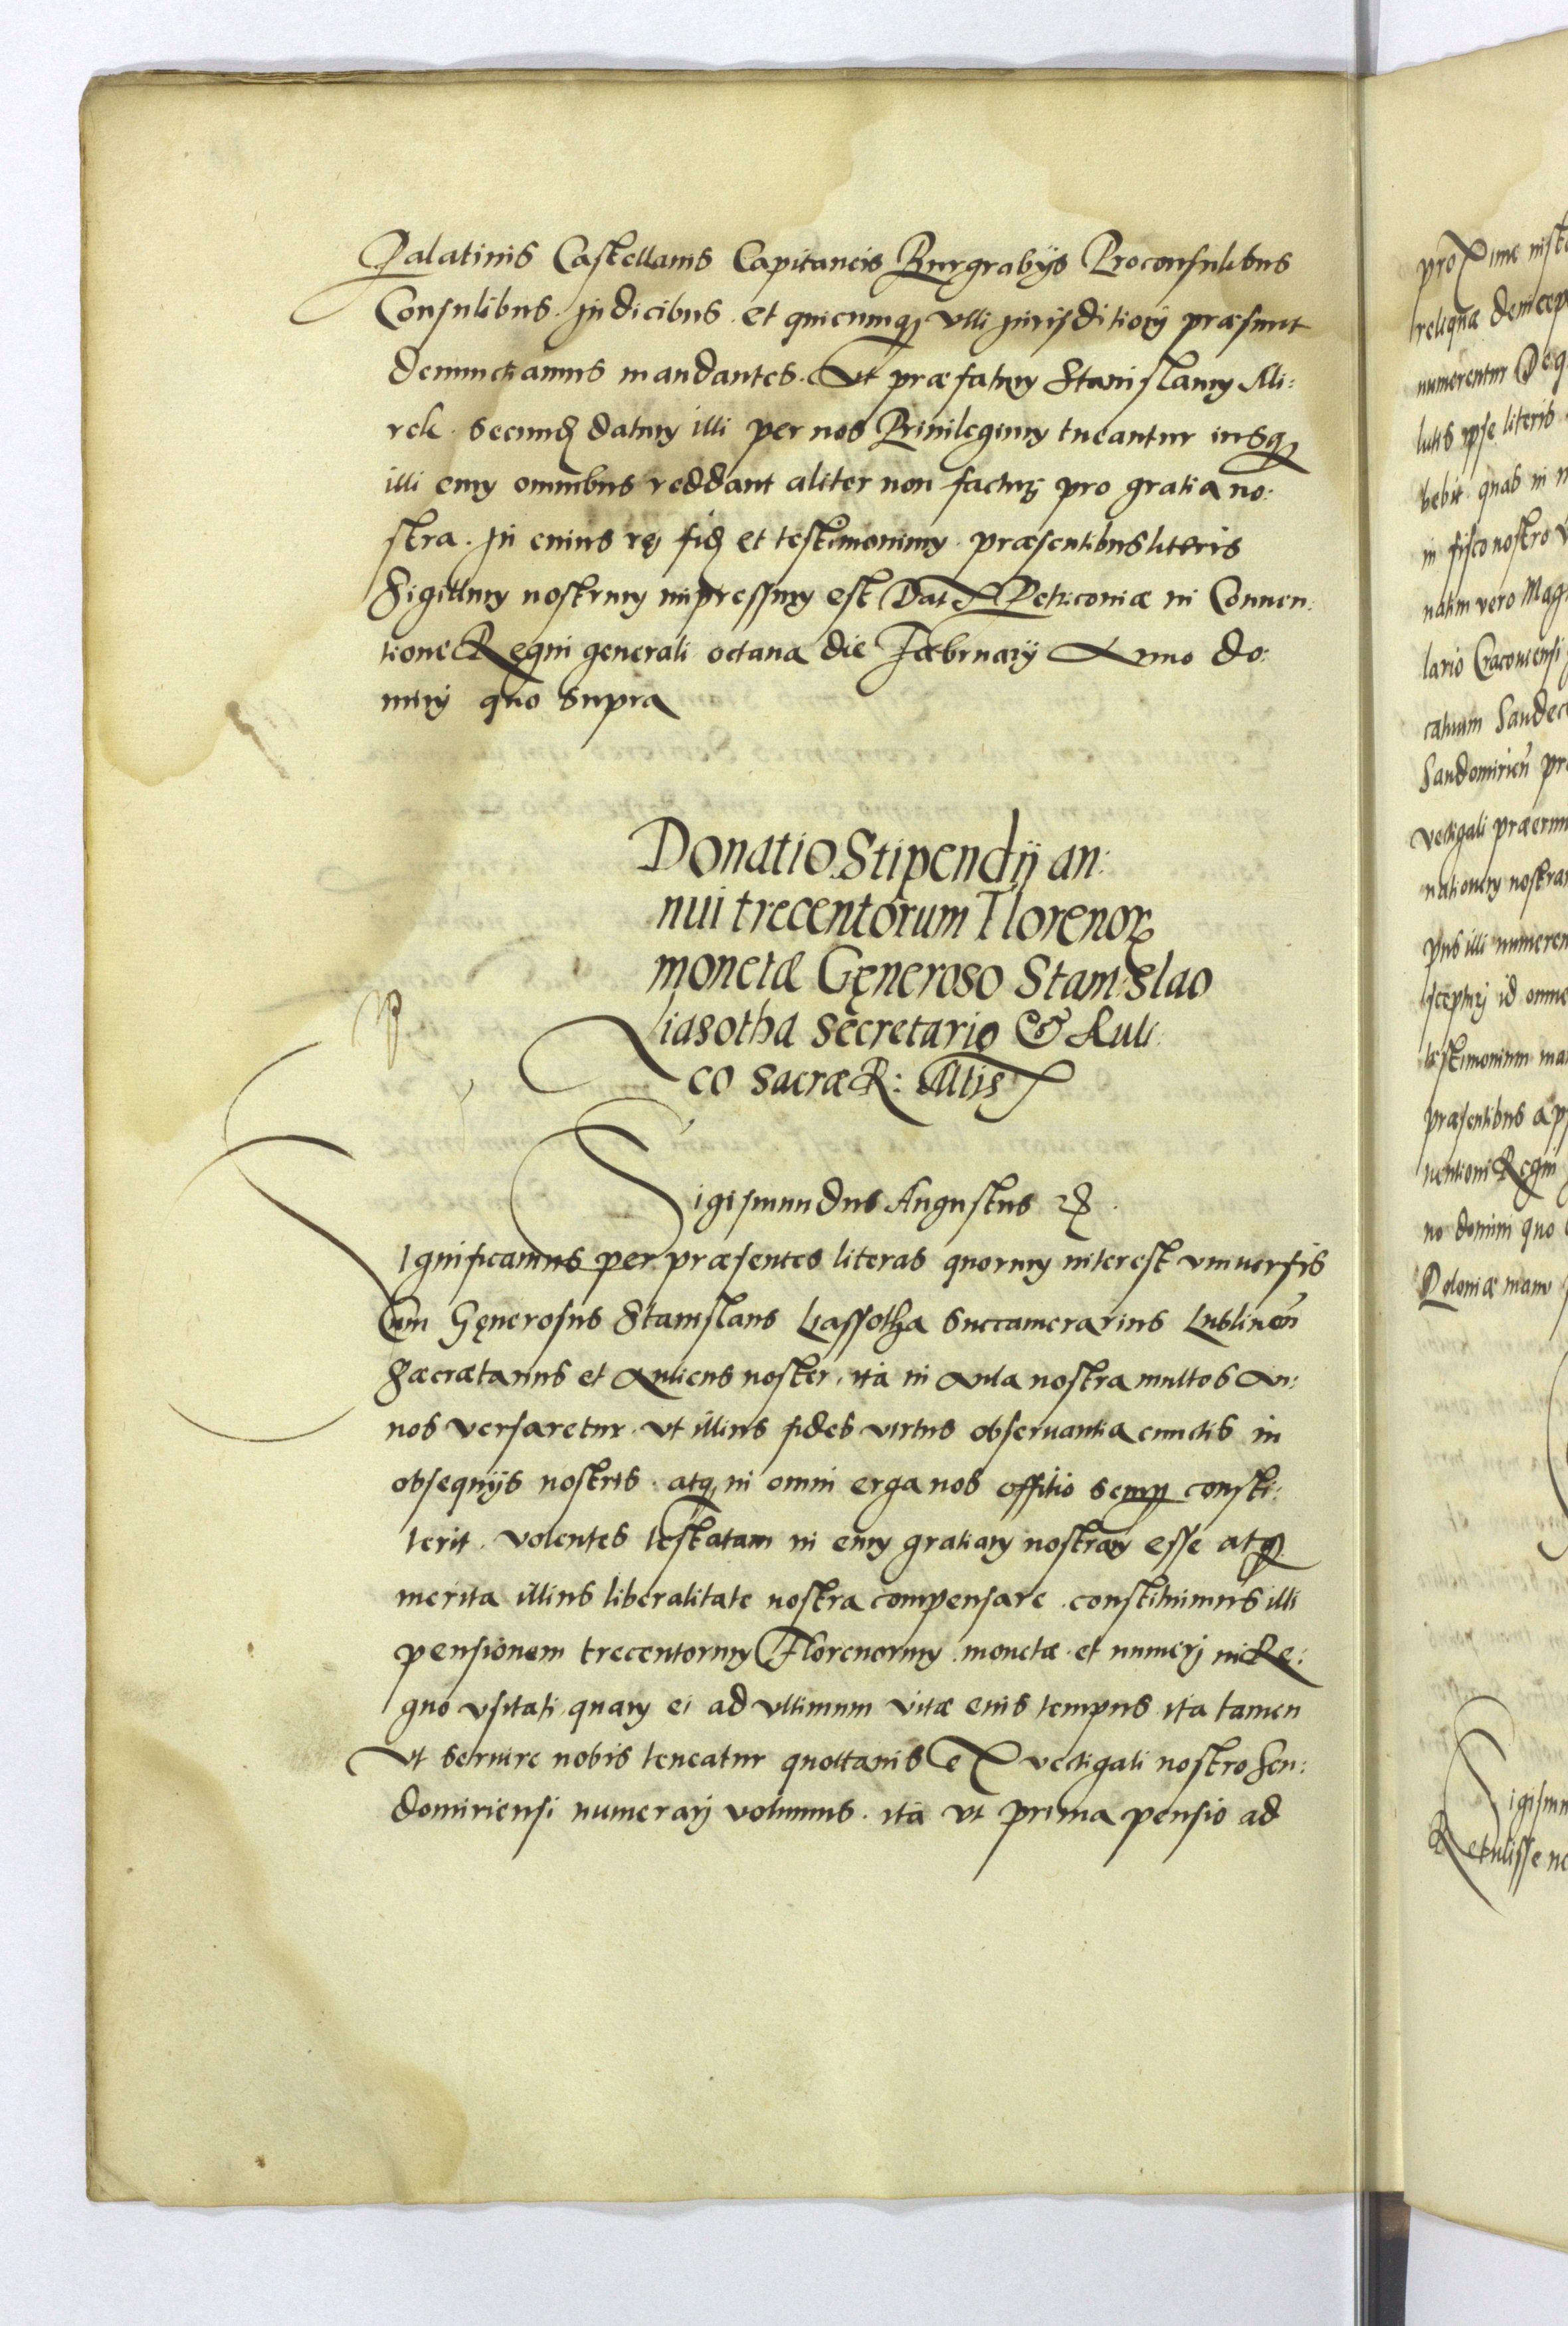 Palatinis Castellanis Capitaneis Burgrabijs Proconsulibus
Consulibus. Judicibus. et quicumq₃ vlli Jurisditiony præsunt
denunctiamus mandantes. Vt præfatuṃ Stanislaum Mi:
rek. secundū datum illi per nos Privilegium tueantur iusq₃
illi cum omnibus reddant aliter non facturj pro gratia no:
stra. In cuius rej fidē et testimonium. præsentibus literis
Sigillum nostrum impressum est Dat Petricoviæ in Conuen:
tione Regni generali octaua die Fæbruarij Anno do:
minj quo supra
Donatio Stipendij an:
nui trecentorum Florenor
monetæ Generoso Stanislao
Liasotha Secretario & Auli
co Sacræ R: Mtis
Sigismundus Augustus
Significamus per præsentes literas quorum interest vniuersis
Cum Generosus Stanislaus Lassotha Succamerarius Lublinen̄
Sæcrætarius et Aulicus noster, ita in Aula nostra multos An:
nos versaretur. vt illius fides virtus obseruantia cunctis in
obsequijs nostris. atq₃ in omni erga nos offitio semp consti:
terit. volentes testatam in eum gratiam nostram esse atq₃
merita illius liberalitate nostra compensare. constituimus illi
pensionem trecentorum Florenorum. monetæ. et numerj in Re:
gno vsitati quam ei ad vltimum vitæ eius tempus ita tamen
Vt seruire nobis teneatur quottanis ex vectigali nostro San:
domiriensi numerarj volumus. ita vt prima pensio ad
proxime
reliquæ deincep
numerentur Deq
ipse literis
bebit quas in
in fisco nostro
natim vero Mag
lario Cracouiensi
catuum Sandec
Sandomirien̄ pr
vectigali præerun
nationem nostram
illi numeren
id omne
testimonium
præsentibus ap
uentioni Regni
no domini quo
Poloniæ manu
Sigismu
Retulisse no